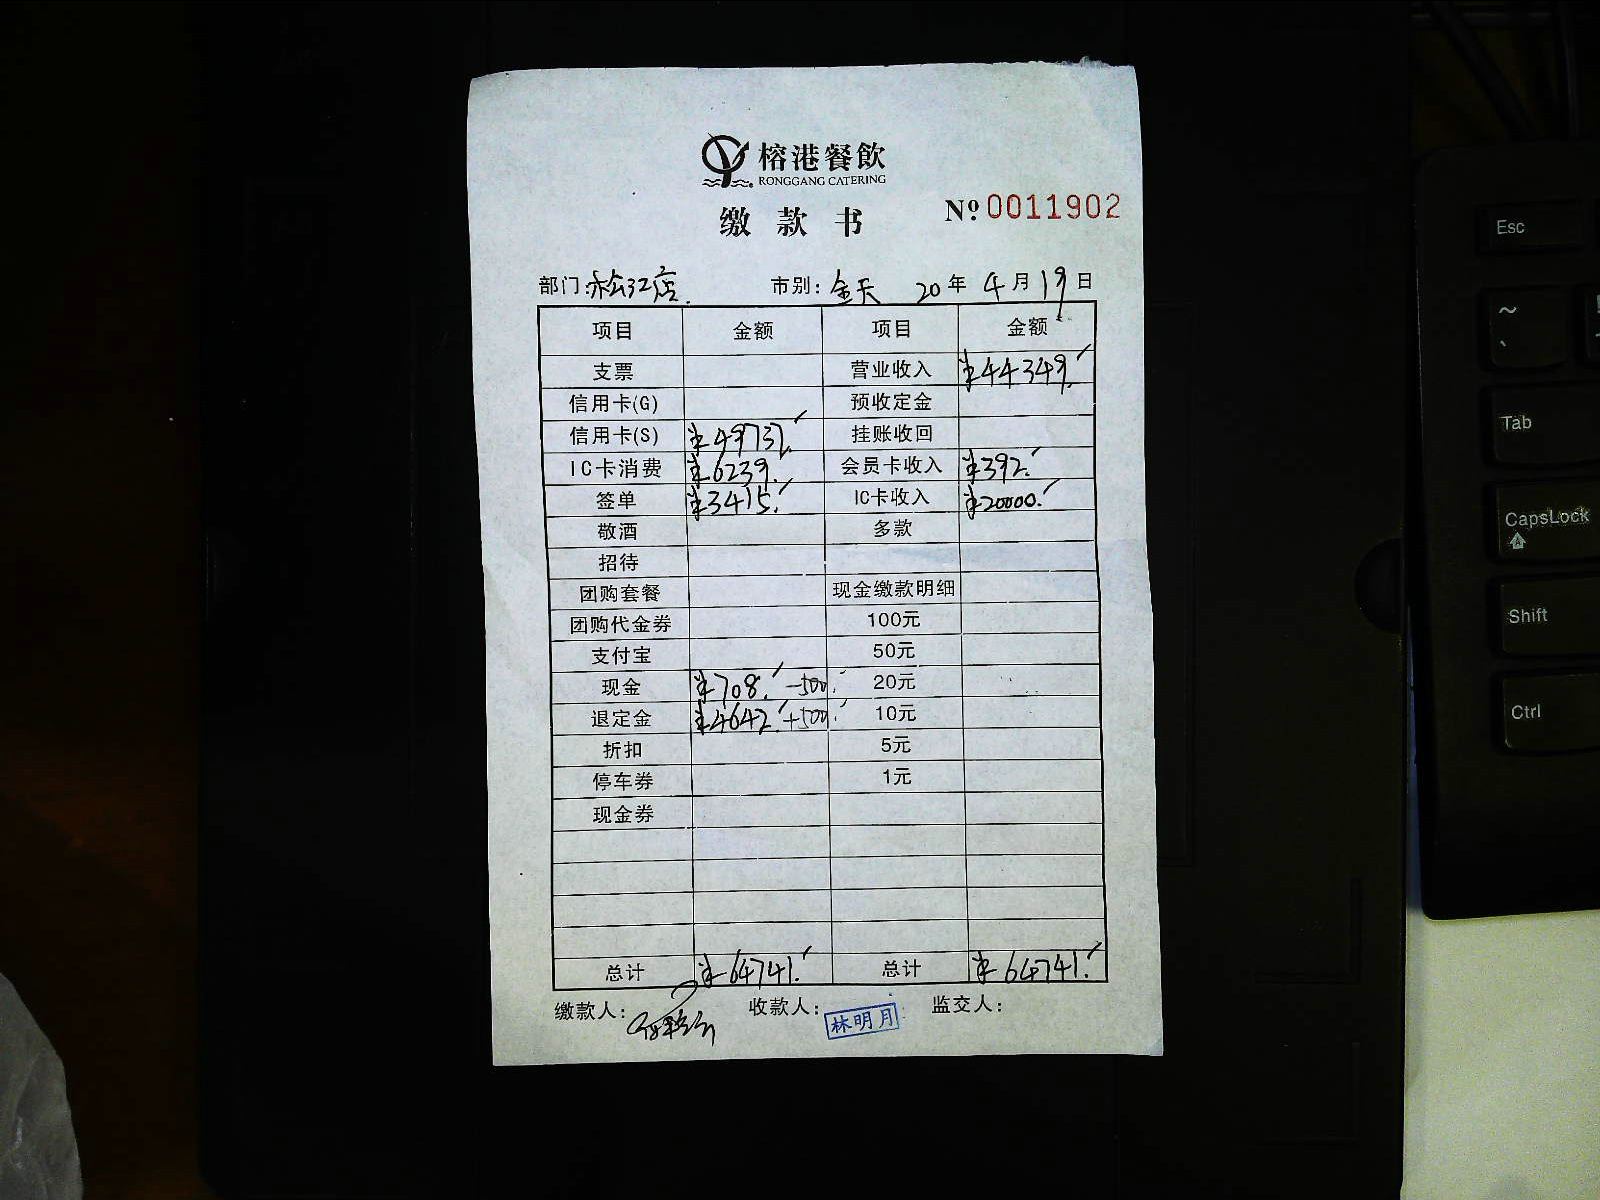 榕港餐飲
RONGGANG CATERING
缴款书
Nº 0011902
部门:松江店. 市别:全天 20年4月19日
项目 金额 项目 金额
支票 营业收入 ¥44349.
信用卡(G) 预收定金
信用卡(S) ¥49737. 挂账收回
IC卡消费 ¥6239. 会员卡收入 ¥392.
签单 ¥3415. IC卡收入 ¥20000.
敬酒 多款
招待
团购套餐 现金缴款明细
团购代金券 100元
支付宝 50元
现金 ¥708. -500. 20元
退定金 ¥4642. +500. 10元
折扣 5元
停车券 1元
现金券
总计 ¥64741. 总计 ¥64741.
缴款人: 收款人: 林明月 监交人:
Esc
~
`
Tab
CapsLock
Shift
Ctrl